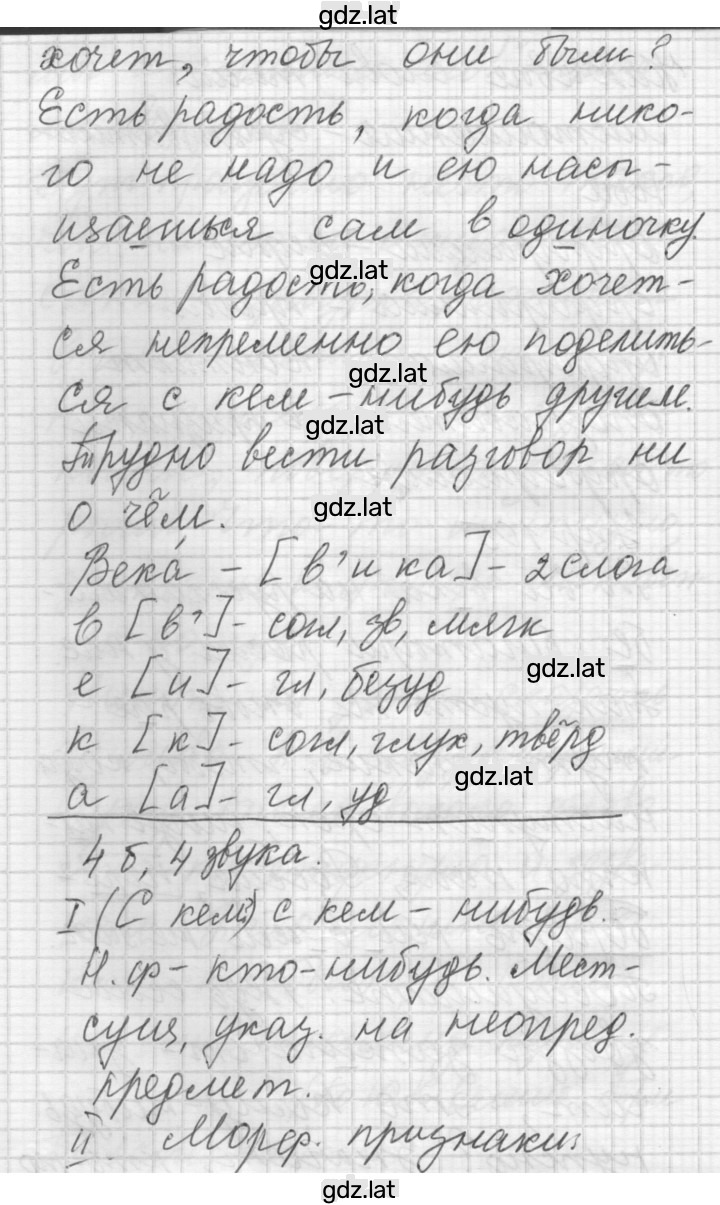 gdz.lat
хочет, чтобы они были?
Есть радость, когда нико-
го не надо и ею насы-
щаешься сам в одиночку.
gdz.lat
Есть радость, когда хочет-
ся непременно ею поделить-
gdz.lat
ся с кем-нибудь другим.
gdz.lat
Трудно вести разговор ни
gdz.lat
о чём.
Века́ – [в'ика] – 2 слога
в [в'] – согл, зв, мягк
gdz.lat
е [и] – гл, безуд
к [к] – согл, глух, твёрд
gdz.lat
а [а] – гл, уд
4 б, 4 звука.
I (С кем?) с кем-нибудь.
Н.ф – кто-нибудь. Мест-
сущ, указ. на неопред.
предмет.
II Морф. признаки:
gdz.lat